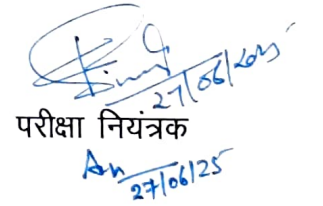 27/06/2025
परीक्षा नियंत्रक
27/06/25